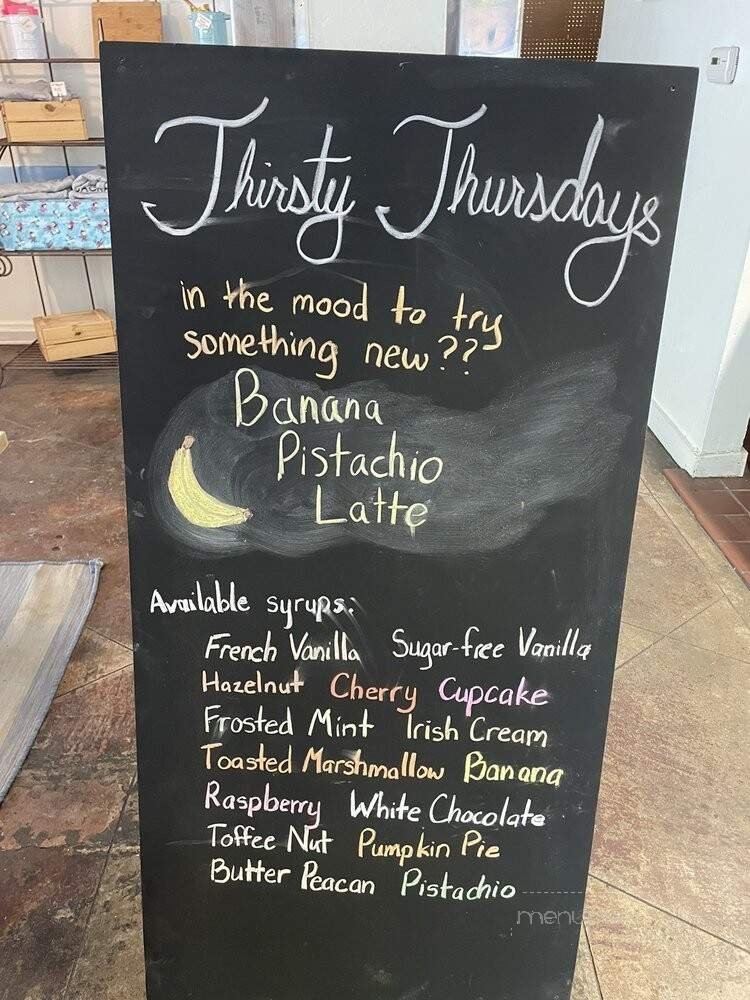 Thirsty Thursdays
in the mood to try
something new??
Banana
Pistachio
Latte
Available syrups:
French Vanilla Sugar-free Vanilla
Hazelnut Cherry Cupcake
Frosted Mint Irish Cream
Toasted Marshmallow Banana
Raspberry White Chocolate
Toffee Nut Pumpkin Pie
Butter Peacan Pistachio